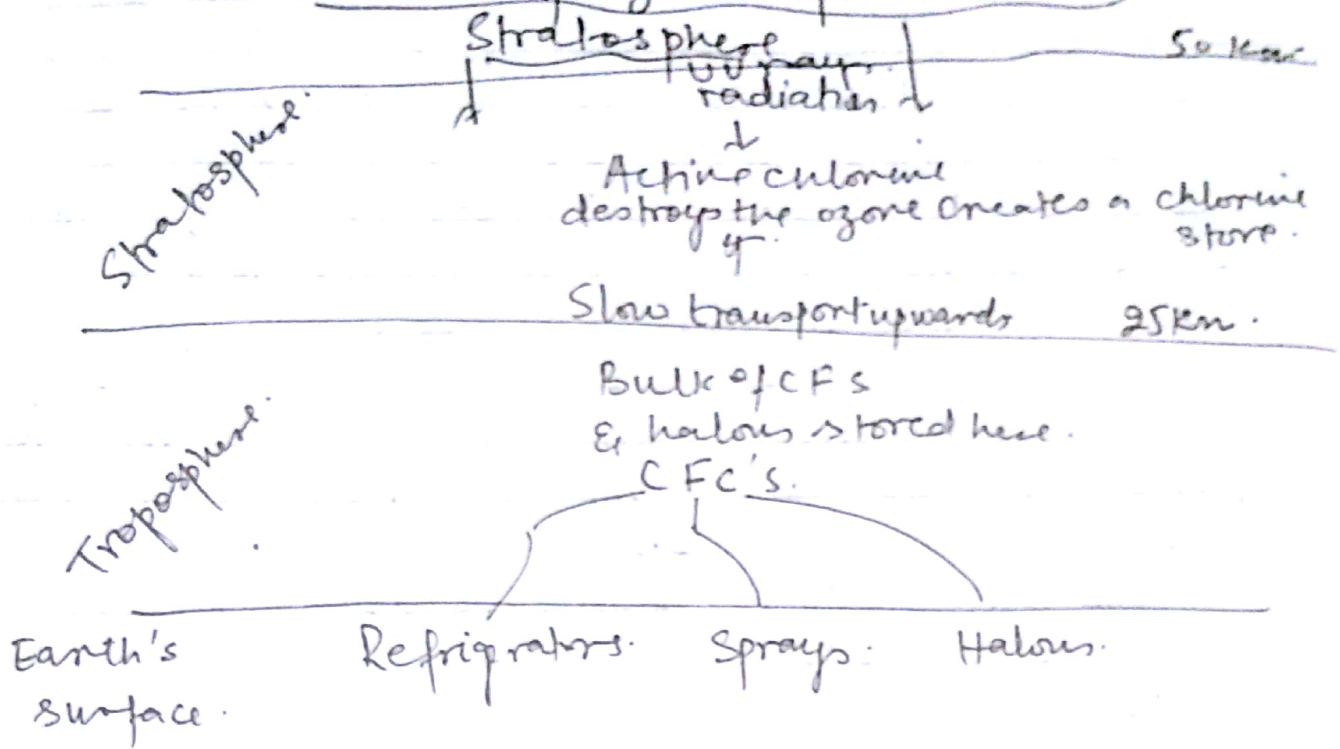 Stratosphere
50 Km
UV rays
radiation
Stratosphere.
Active chlorine
destroys the ozone creates a chlorine
store.
Slow transport upwards 25Km.
Bulk of CFs
& halons stored here.
Troposphere.
CFC's.
Earth's
surface.
Refrigrators. Sprays. Halons.